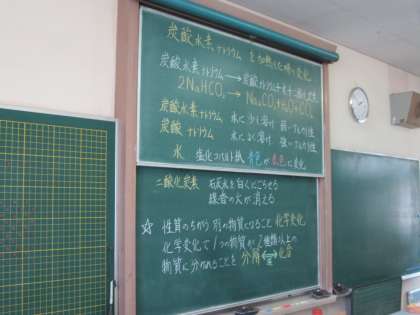 炭酸水素ナトリウムを加熱した時の変化
炭酸水素ナトリウム→炭酸ナトリウム+水+二酸化炭素
2NaHCO₃→Na₂CO₃+H₂O+CO₂
炭酸水素ナトリウム 水に少し溶け 弱いアルカリ性
炭酸ナトリウム 水によく溶け 強いアルカリ性
水 塩化コバルト紙 青色が赤色に変化
二酸化炭素 石灰水を白くにごらせる
線香の火が消える
☆性質のちがう別の物質になること 化学変化
化学変化で1つの物質が2種類以上の
物質に分かれることを分解⟷化合